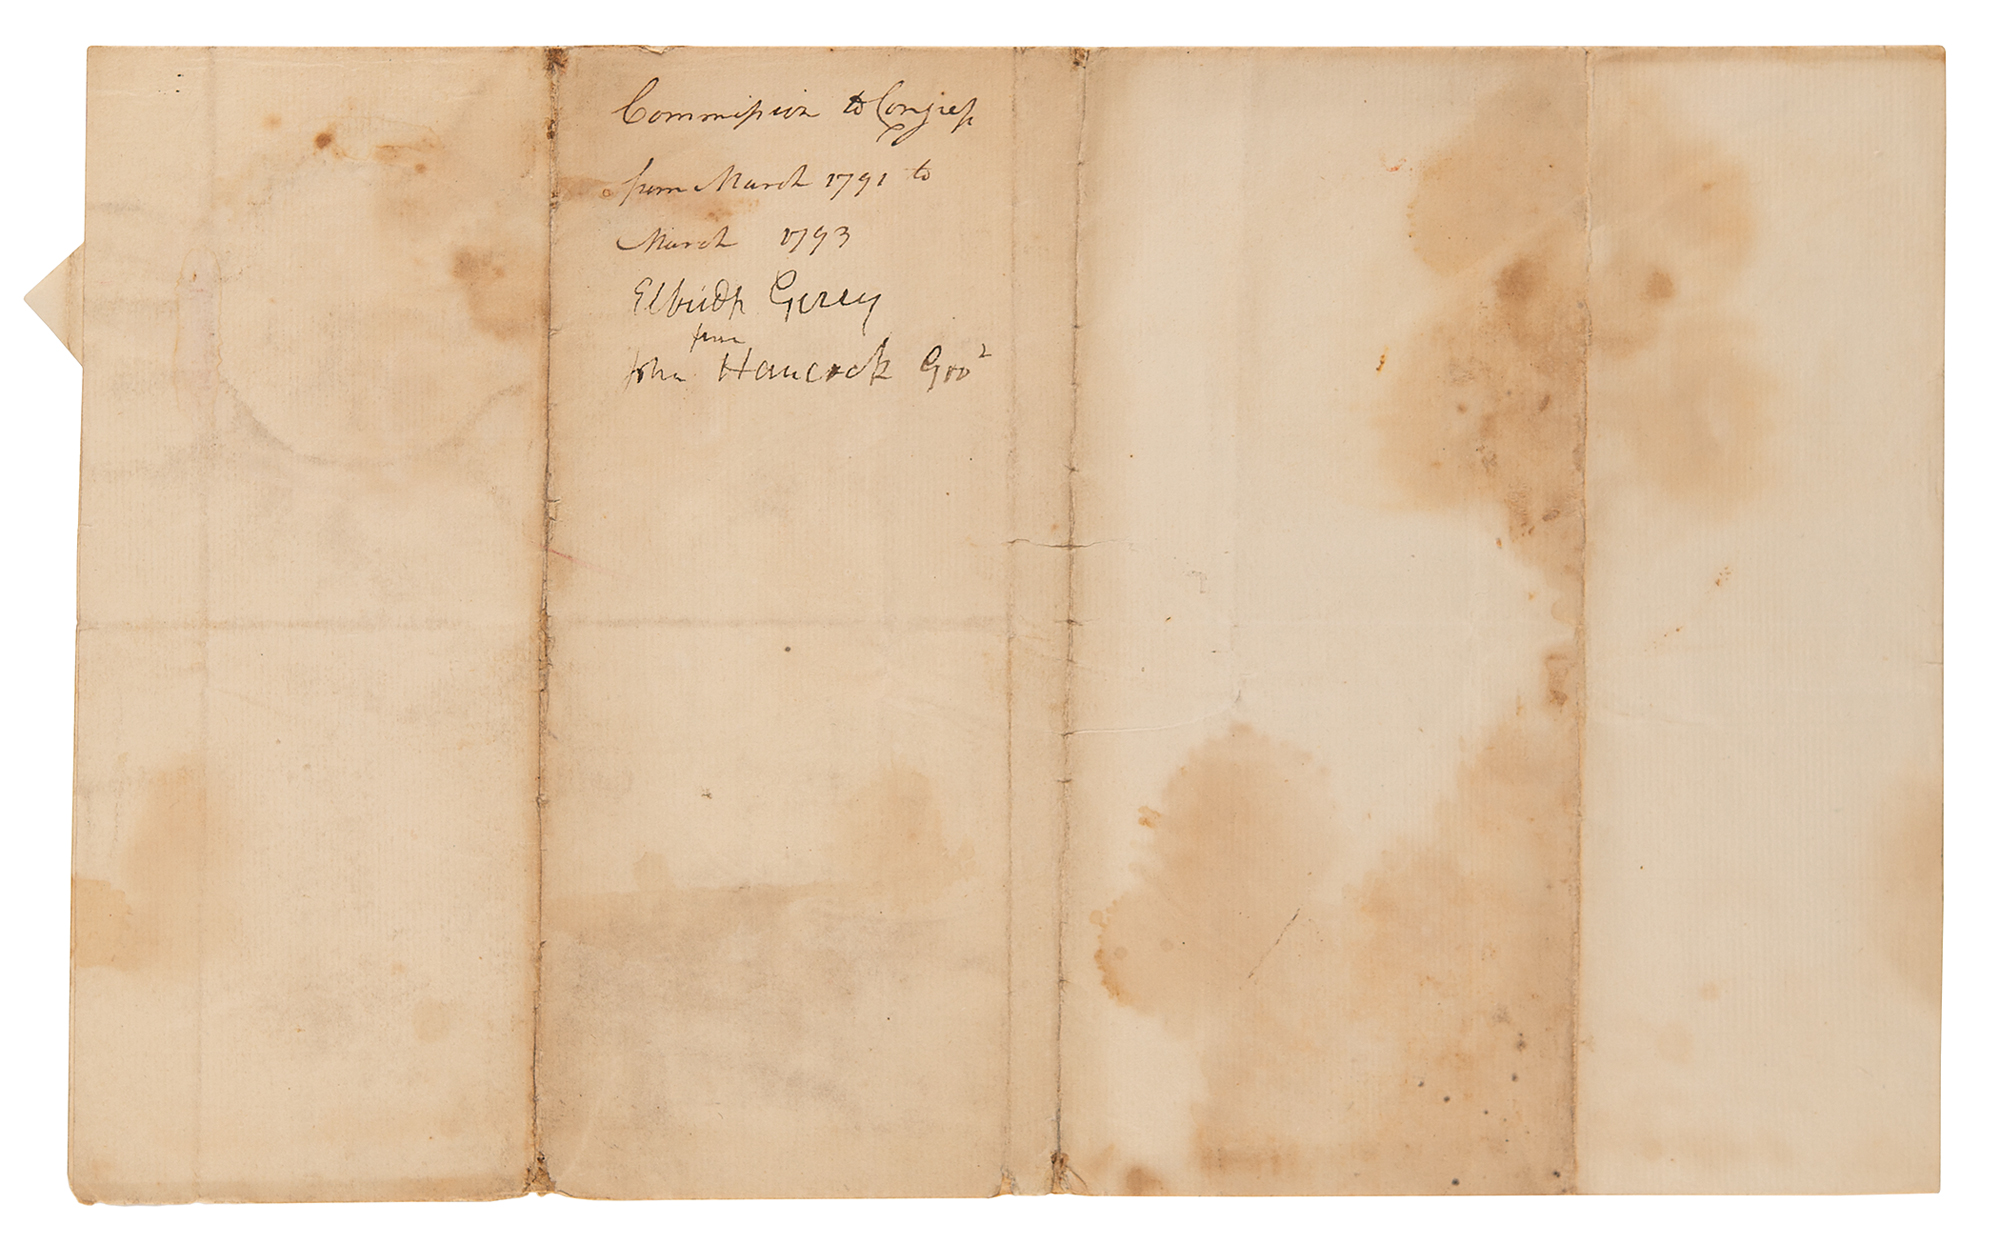 Commission to Congress
from March 1791 to
March 1793
Elbridge Gerry
from
John Hancock Govr